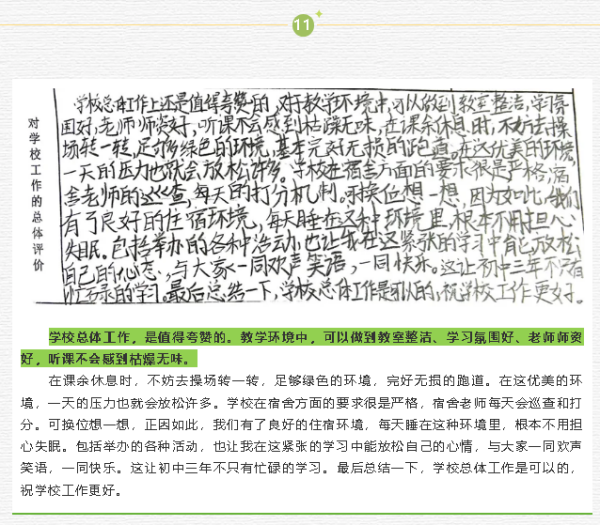 11
对学校工作的总体评价
学校总体工作上还是值得夸赞的,对于教学环境中,可以做到教室整洁,学习氛
围好,老师师资好,听课不会感到枯躁无味,在课余休息时,不妨去操
场转一转,足够多绿色的环境,基本完好无损的跑道。在这优美的环境,
一天的压力也就会放松许多。学校在宿舍方面的要求很是严格,宿
舍老师的巡查,每天的打分机制。可换位想一想,因为如此,我们
有了良好的住宿环境,每天睡在这种环境里,根本不用担心
失眠。包括举办的各种活动,也让我在这紧张的学习中有已放松
自己的心态,与大家一同欢声笑语,一同快乐。这让初中三年不只有
忙碌的学习。最后总结一下,学校总体工作是可以的,祝学校工作更好。
学校总体工作,是值得夸赞的。教学环境中,可以做到教室整洁、学习氛围好、老师师资
好,听课不会感到枯燥无味。
在课余休息时,不妨去操场转一转,足够绿色的环境,完好无损的跑道。在这优美的环
境,一天的压力也就会放松许多。学校在宿舍方面的要求很是严格,宿舍老师每天会巡查和打
分。可换位想一想,正因如此,我们有了良好的住宿环境,每天睡在这种环境里,根本不用担
心失眠。包括举办的各种活动,也让我在这紧张的学习中能放松自己的心情,与大家一同欢声
笑语,一同快乐。这让初中三年不只有忙碌的学习。最后总结一下,学校总体工作是可以的,
祝学校工作更好。